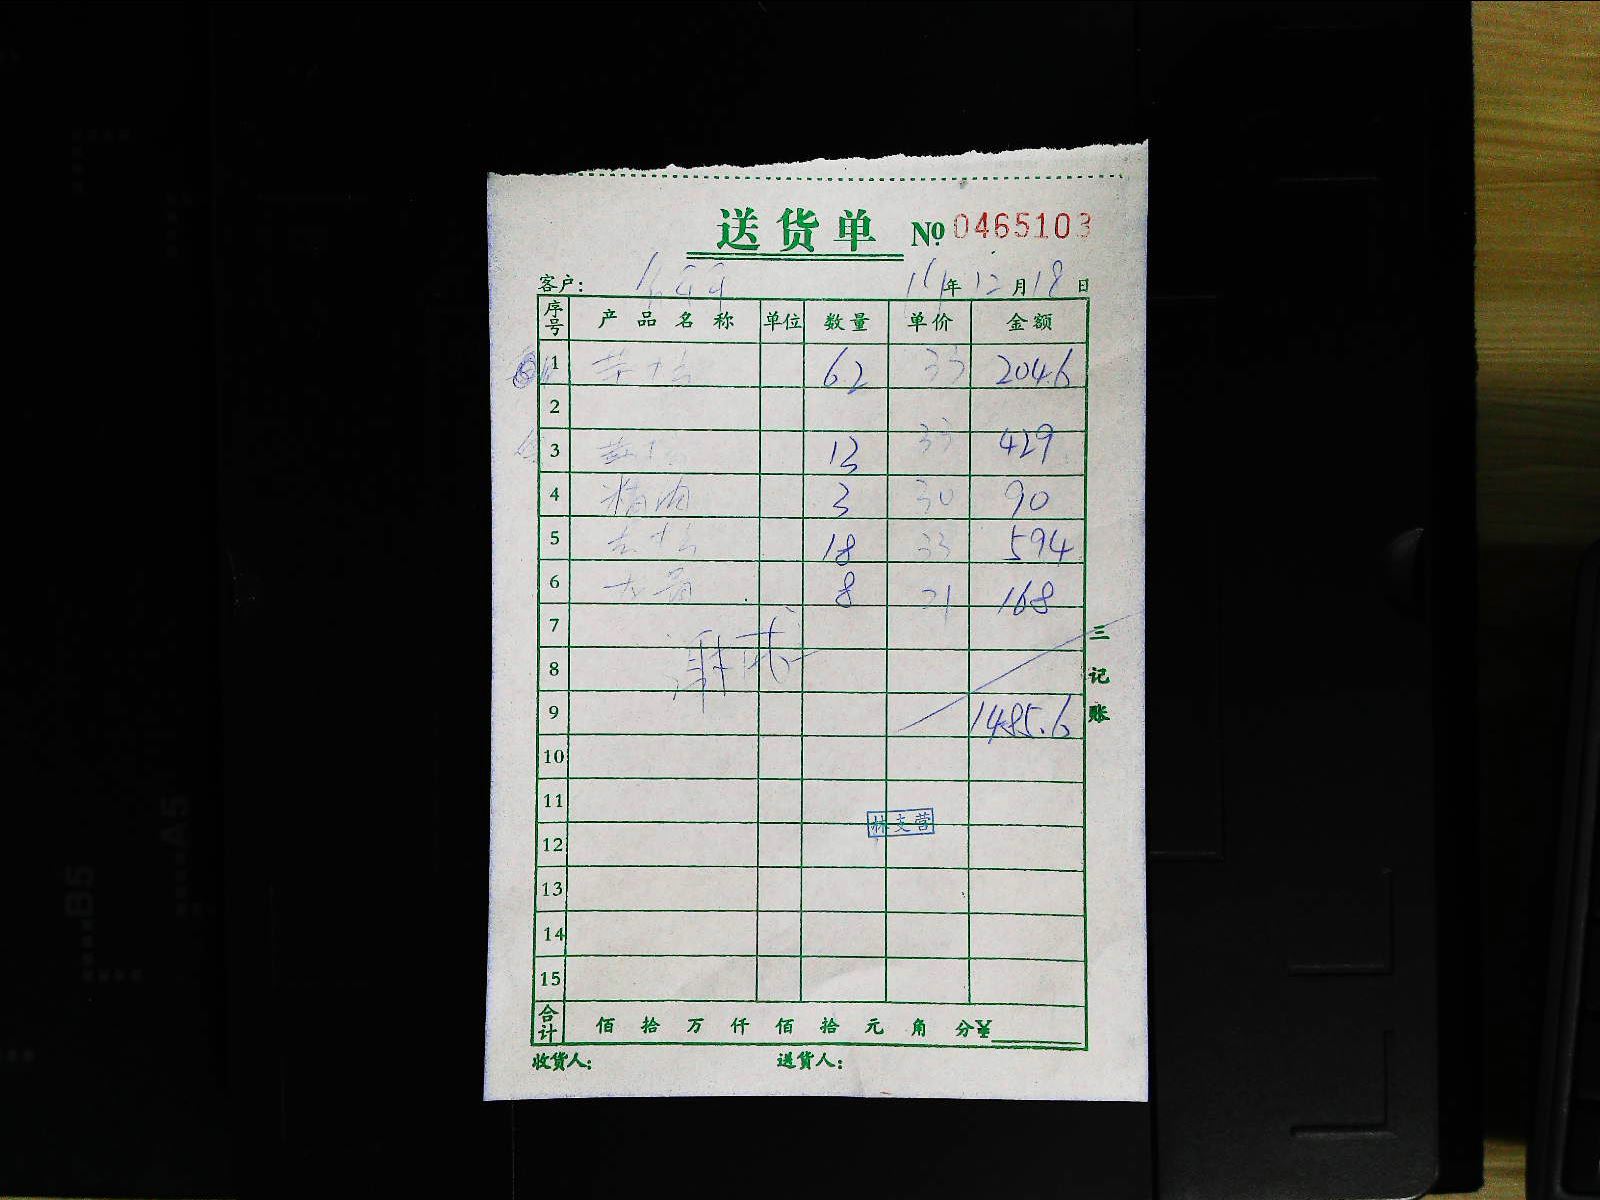 送货单 № 0465103
客户： 年 12 月 18 日
序号 产品名称 单位 数量 单价 金额
1 62 33 204.6
2
3 13 33 429
4 精肉 3 30 90
5 18 33 594
6 龙骨 8 21 168
7
8
9 1485.6
10
11
林支营
12
13
14
15
合计 佰 拾 万 仟 佰 拾 元 角 分 ¥
收货人： 送货人：
三
记
账